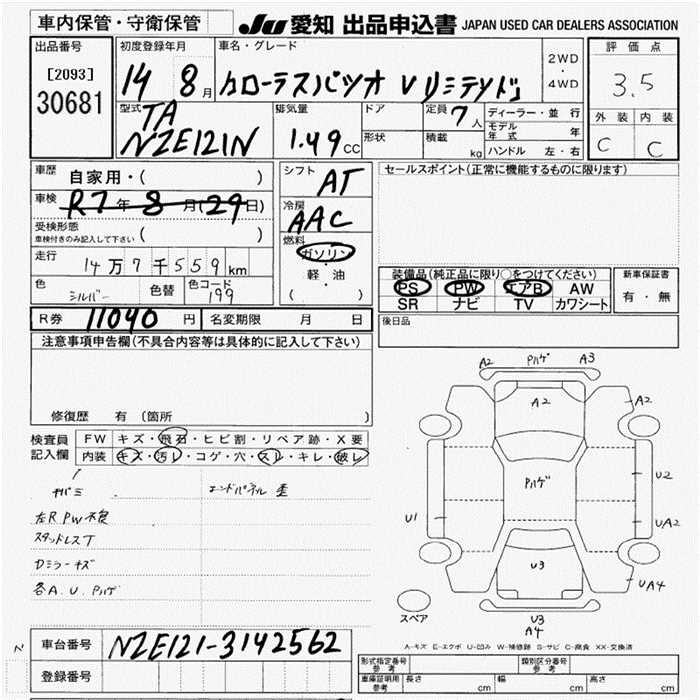 車内保管・守衛保管
JU 愛知 出品申込書 JAPAN USED CAR DEALERS ASSOCIATION
出品番号
[2093]
30681
初度登録年月
14 8月
車名・グレード
カローラスパシオ V リミテッド
2WD
・
4WD
評価点
3.5
外装 内装
C C
型式
TA
NZE121N
排気量
1.49 CC
ドア
形状
定員 7人
積載 kg
ディーラー・並行
モデル年式 年
ハンドル 左・右
車歴 自家用・( )
車検 R7年8月(29日)
受検形態
車検付きのみ記入して下さい ( )
走行
14万7千559km
色 シルバー 色替 色コード 199
シフト AT
冷房 AAC
燃料
ガソリン
・
軽・油
( )
セールスポイント(正常に機能するものに限ります)
装備品(純正品に限り○をつけてください)
PS PW エアB AW
SR ナビ TV カワシート
新車保証書
有・無
後日品
R券 11040 円 名変期限 月 日
注意事項申告欄(不具合内容等は具体的に記入して下さい)
修復歴 有 (箇所 )
検査員
記入欄
FW キズ・飛石・ヒビ割・リペア跡・X要
内装 キズ・汚レ・コゲ・穴・スレ・キレ・破レ
エンドパネル 歪
左R PW不良
スタッドレスT
Dミラーキズ
各A.U.Pハゲ
A2 Pハゲ A3
A2
A2
Pハゲ
U2
U1
UA2
U3
UA4
スペア
U3
A4
A-キズ E-エクボ U-凹み W-補修跡 S-サビ C-腐食 XX-交換済
N
車台番号 NZE121-3142562
登録番号
形式指定番号
参考
類別区分番号
参考
車庫証明用
参考
長さ cm 幅 cm 高さ cm